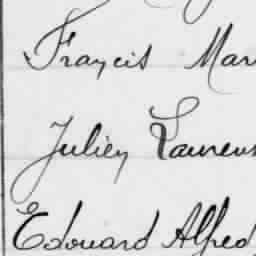 Francis Mar
Julien Laurens
Edouard Alfred